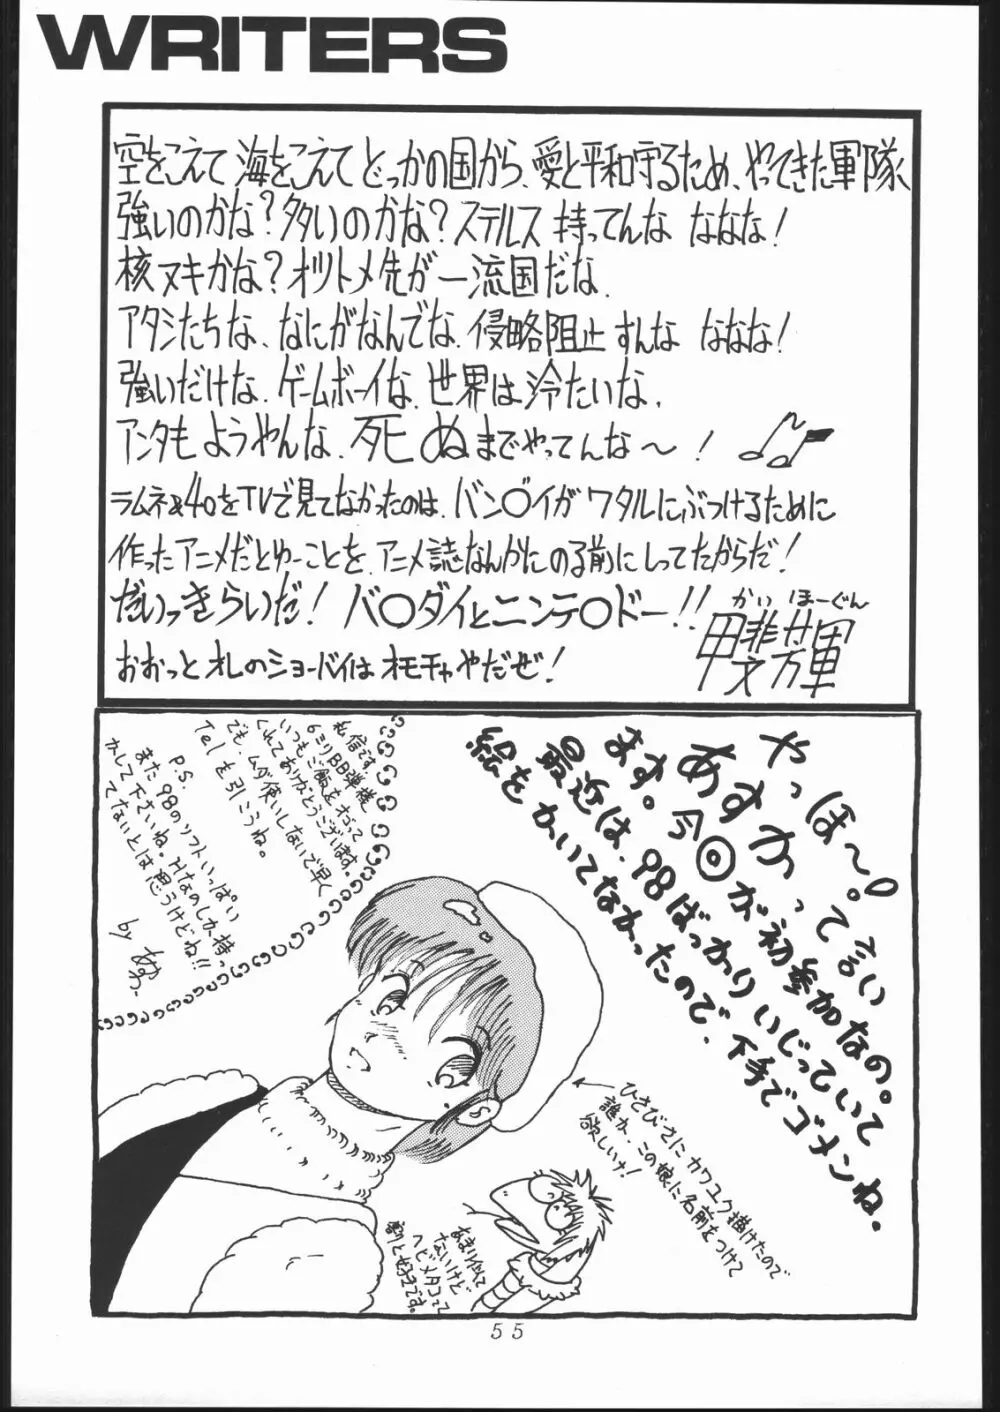 WRITERS
空をこえて 海をこえて どっかの国から、愛と平和守るため、やってきた軍隊
強いのかな?多いのかな?ステルス 持ってんな ななな!
核ヌキかな?オリトメ先が一流国だな.
アタシたちな、なにがなんでな.侵略阻止 すんな ななな!
強いだけな.ゲームボーイな.世界は冷たいな.
アンタも ようやんな.死ぬまでやってんな〜!
ラムネ&40をTVで見てなかったのは、バン〇イが ワタルにぶつけるために
作ったアニメだとゆーことを、アニメ誌なんかにのる前にしってたからだ!
だいっきらいだ! バ〇ダイとニンテ〇ドー!!
かい ほーぐん
甲斐芳軍
おおっと オレのショーバイは オモチャやだぜ!
やっほ〜!
あすか。って言い
ます。今回が初参加なの。
最近は、98ばっかりいじっていて
絵をかいてなかったので、下手でゴメンね.
私信です.
6ミリBB弾様
いつもご飯をおごって
くれてありがとうございます。
でも、ムダ使いしないで早く
Telを引こうね。
P.S.
また98のソフトいっぱい
かして下さいね。Hなのしか持っ
てないとは思うけどね!!
by あすか.
ひさびさに カワユク 描けたので
誰か、この娘に名前をつけて
欲しいナ!
あまり似て
ないけど
ヘビメタコって
割と好きです。
55